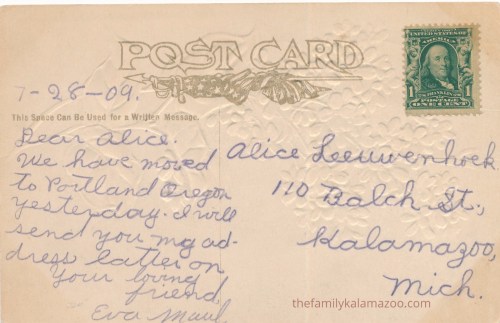 POST CARD
7-28-09.
This Space Can Be Used for a Written Message.
Dear Alice.
We have moved
to Portland Oregon
yesterday. I will
send you my ad-
dress latter on
Your loving
friend
Eva Maul
Alice Leeuwenhoek
110 Balch St.,
Kalamazoo,
Mich.
UNITED STATES OF
AMERICA
1 FRANKLIN 1
POSTAGE
ONE CENT
thefamilykalamazoo.com